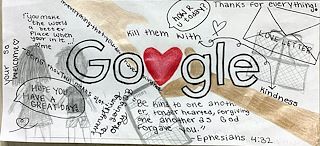 Thanks for everything!
how r u today?
"you make the world a better place when your in it."
~me
kill them with
LOVE LETTER
your so welcome!
Google
kindness
HOPE YOU HAVE A GREAT DAY!
everything is going to be okay!
"Be kind to one another, tender hearted, forgiving one another as God forgave you."
-Ephesians 4:32